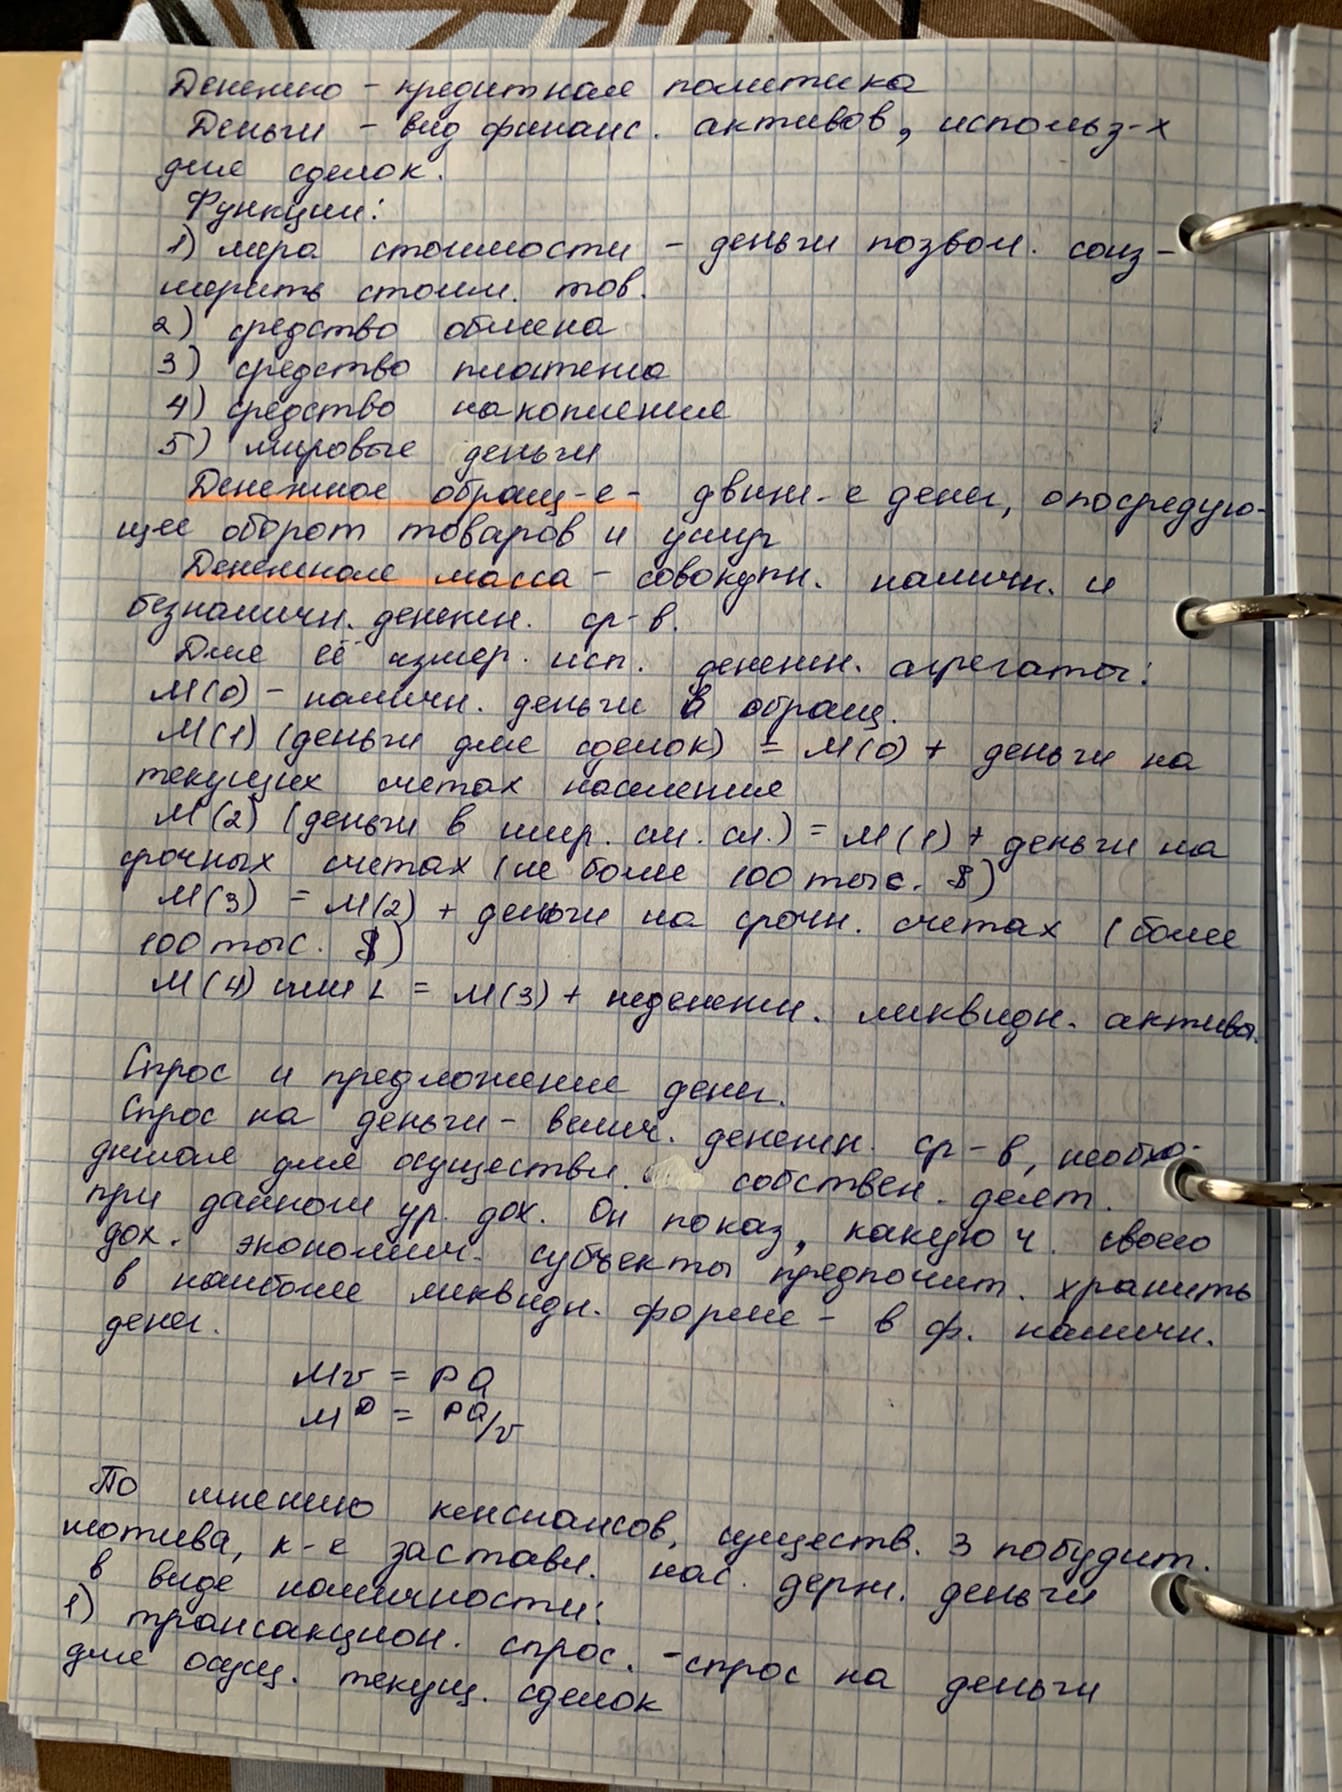 Денежно - кредитная политика
Деньги - вид финанс. активов, использ-х
для сделок.
Функции:
1) мера стоимости - деньги позвол. соиз-
мерить стоим. тов.
2) средство обмена
3) средство платежа
4) средство накопления
5) мировые деньги
Денежное обращ-е - движ-е денег, опосредую-
щее оборот товаров и услуг
Денежная масса - совокупн. наличн. и
безналичн. денежн. ср-в.
Для её измер. исп. денежн. агрегаты:
М(0) - наличн. деньги в обращ.
М(1) (деньги для сделок) = М(0) + деньги на
текущих счетах населения
М(2) (деньги в шир. см. сл.) = М(1) + деньги на
срочных счетах (не более 100 тыс. $)
М(3) = М(2) + деньги на срочн. счетах (более
100 тыс. $)
М(4) или L = М(3) + неденежн. ликвидн. активы.
Спрос и предложение денег.
Спрос на деньги - велич. денежн. ср-в, необхо-
димая для осуществл. собствен. деят.
при данном ур. дох. Он показ, какую ч. своего
дох. экономич. субъекты предпочит. хранить
в наиболее ликвидн. форме - в ф. наличн.
денег.
Mv = PQ
M^D = PQ/v
По мнению кенсиансов, существ. 3 побудит.
мотива, к-е заставл. нас. держ. деньги
в виде наличности:
1) трансакцион. спрос. - спрос на деньги
для осущ. текущ. сделок